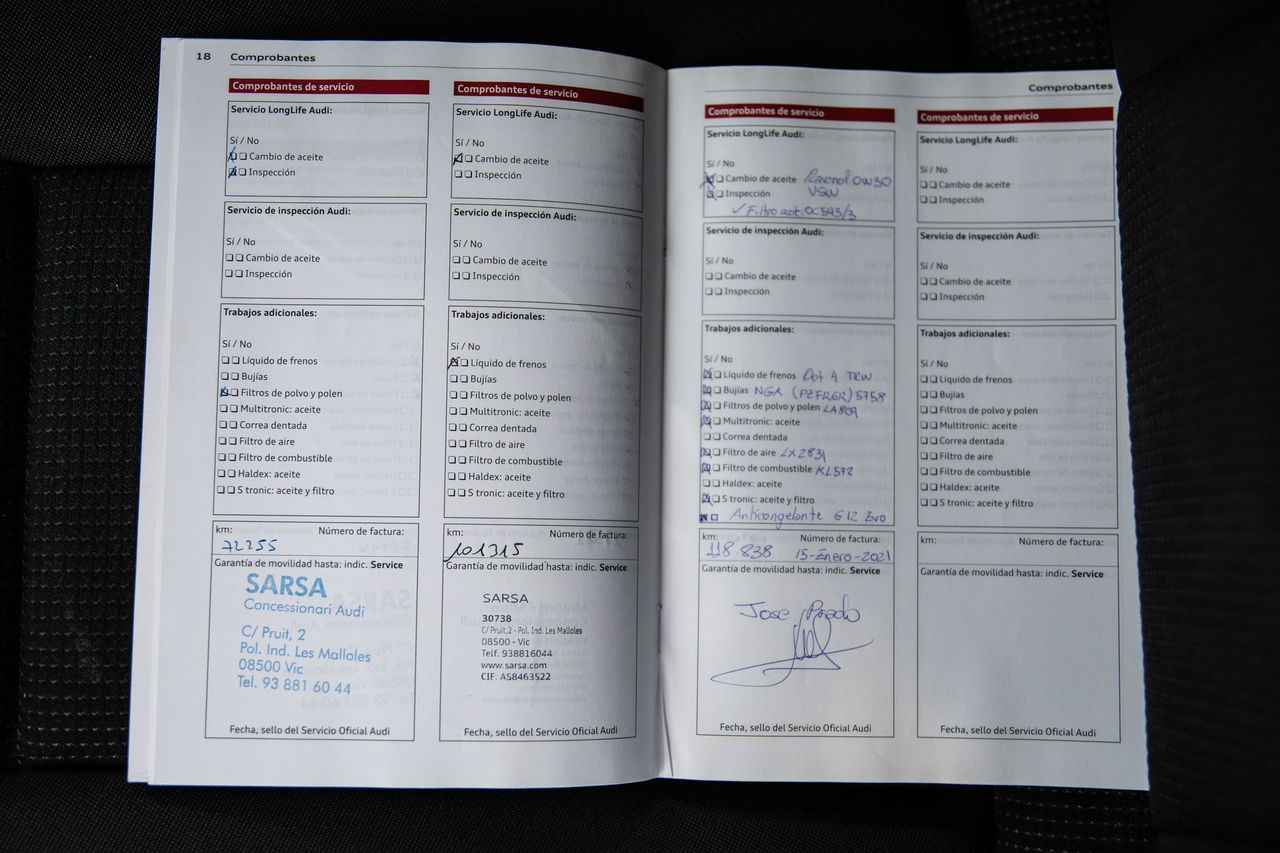 18 Comprobantes
Comprobantes de servicio
Servicio LongLife Audi:
Sí / No
Cambio de aceite
Inspección
Servicio de inspección Audi:
Sí / No
Cambio de aceite
Inspección
Trabajos adicionales:
Sí / No
Líquido de frenos
Bujías
Filtros de polvo y polen
Multitronic: aceite
Correa dentada
Filtro de aire
Filtro de combustible
Haldex: aceite
S tronic: aceite y filtro
km: Número de factura:
72255
Garantía de movilidad hasta: indic. Service
SARSA
Concessionari Audi
C/ Pruit, 2
Pol. Ind. Les Malloles
08500 Vic
Tel. 93 881 60 44
Fecha, sello del Servicio Oficial Audi
Comprobantes de servicio
Servicio LongLife Audi:
Sí / No
Cambio de aceite
Inspección
Servicio de inspección Audi:
Sí / No
Cambio de aceite
Inspección
Trabajos adicionales:
Sí / No
Líquido de frenos
Bujías
Filtros de polvo y polen
Multitronic: aceite
Correa dentada
Filtro de aire
Filtro de combustible
Haldex: aceite
S tronic: aceite y filtro
km: Número de factura:
101315
Garantía de movilidad hasta: indic. Service
SARSA
30738
C/ Pruit,2 - Pol. Ind. Les Malloles
08500 - Vic
Telf. 938816044
www.sarsa.com
CIF: A58463522
Fecha, sello del Servicio Oficial Audi
Comprobantes
Comprobantes de servicio
Servicio LongLife Audi:
Sí / No
Cambio de aceite Ravenol 0W30
Inspección VSW
✓ Filtro OC593/3
Servicio de inspección Audi:
Sí / No
Cambio de aceite
Inspección
Trabajos adicionales:
Sí / No
Líquido de frenos Dot 4 TRW
Bujías NGK (PZFR6R) 5758
Filtros de polvo y polen LA809
Multitronic: aceite
Correa dentada
Filtro de aire LX2831
Filtro de combustible KL572
Haldex: aceite
S tronic: aceite y filtro
Anticongelante G12 Evo
km: Número de factura:
118 838 15-Enero-2021
Garantía de movilidad hasta: indic. Service
Jose
Fecha, sello del Servicio Oficial Audi
Comprobantes de servicio
Servicio LongLife Audi:
Sí / No
Cambio de aceite
Inspección
Servicio de inspección Audi:
Sí / No
Cambio de aceite
Inspección
Trabajos adicionales:
Sí / No
Líquido de frenos
Bujías
Filtros de polvo y polen
Multitronic: aceite
Correa dentada
Filtro de aire
Filtro de combustible
Haldex: aceite
S tronic: aceite y filtro
km: Número de factura:
Garantía de movilidad hasta: indic. Service
Fecha, sello del Servicio Oficial Audi